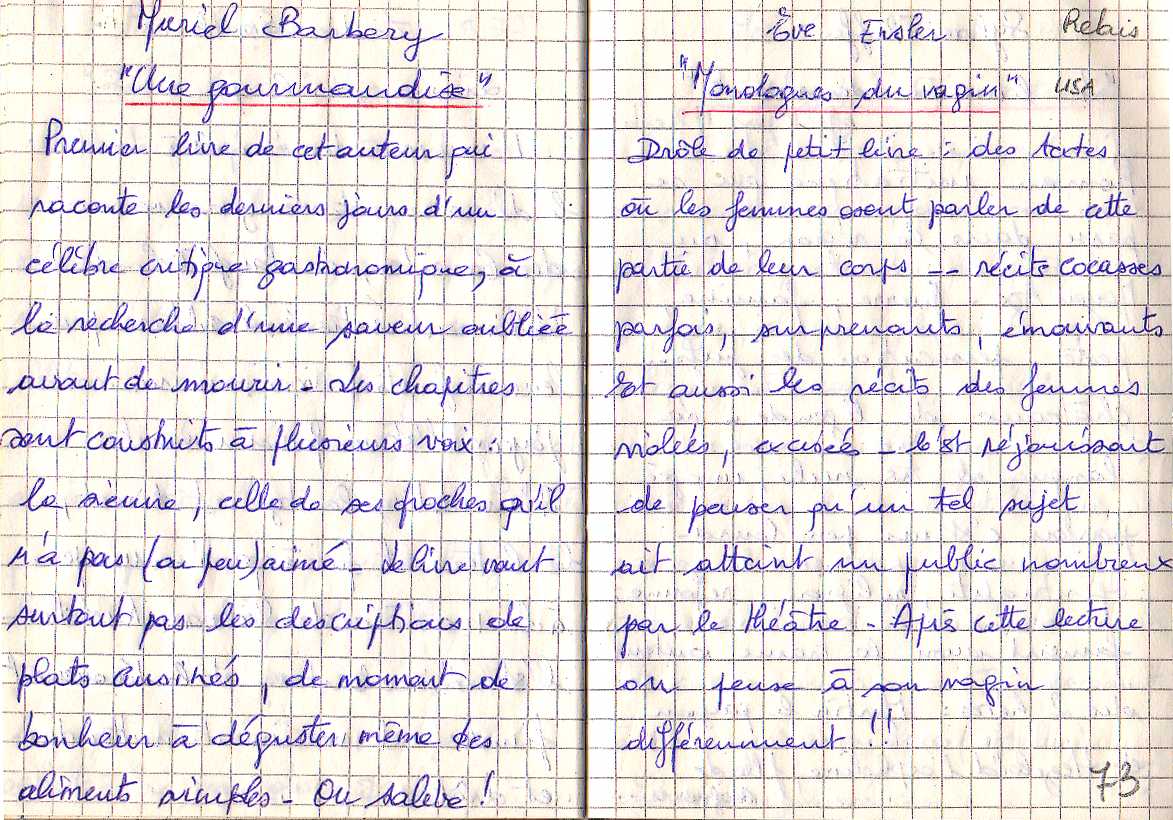 Muriel Barbery
"Une gourmandise"
Premier livre de cet auteur qui
raconte les derniers jours d'un
célèbre critique gastronomique, à
la recherche d'une saveur oubliée
avant de mourir - Les chapitres
sont construits à plusieurs voix :
la sienne, celle de ses proches qu'il
n'a pas (ou peu) aimé - Le livre vaut
surtout pas les descriptions de
plats cuisinés, de moment de
bonheur à déguster même des
aliments simples - On salive !
Ève Ensler Relais
"Monologues du vagin" USA
Drôle de petit livre : des textes
où les femmes osent parler de cette
partie de leur corps -- récits cocasses
parfois, surprenants, émouvants
Et aussi les récits des femmes
violées, excisées - C'est réjouissant
de penser qu'un tel sujet
ait atteint un public nombreux
par le théâtre - Après cette lecture
on pense à son vagin
différemment !!
73